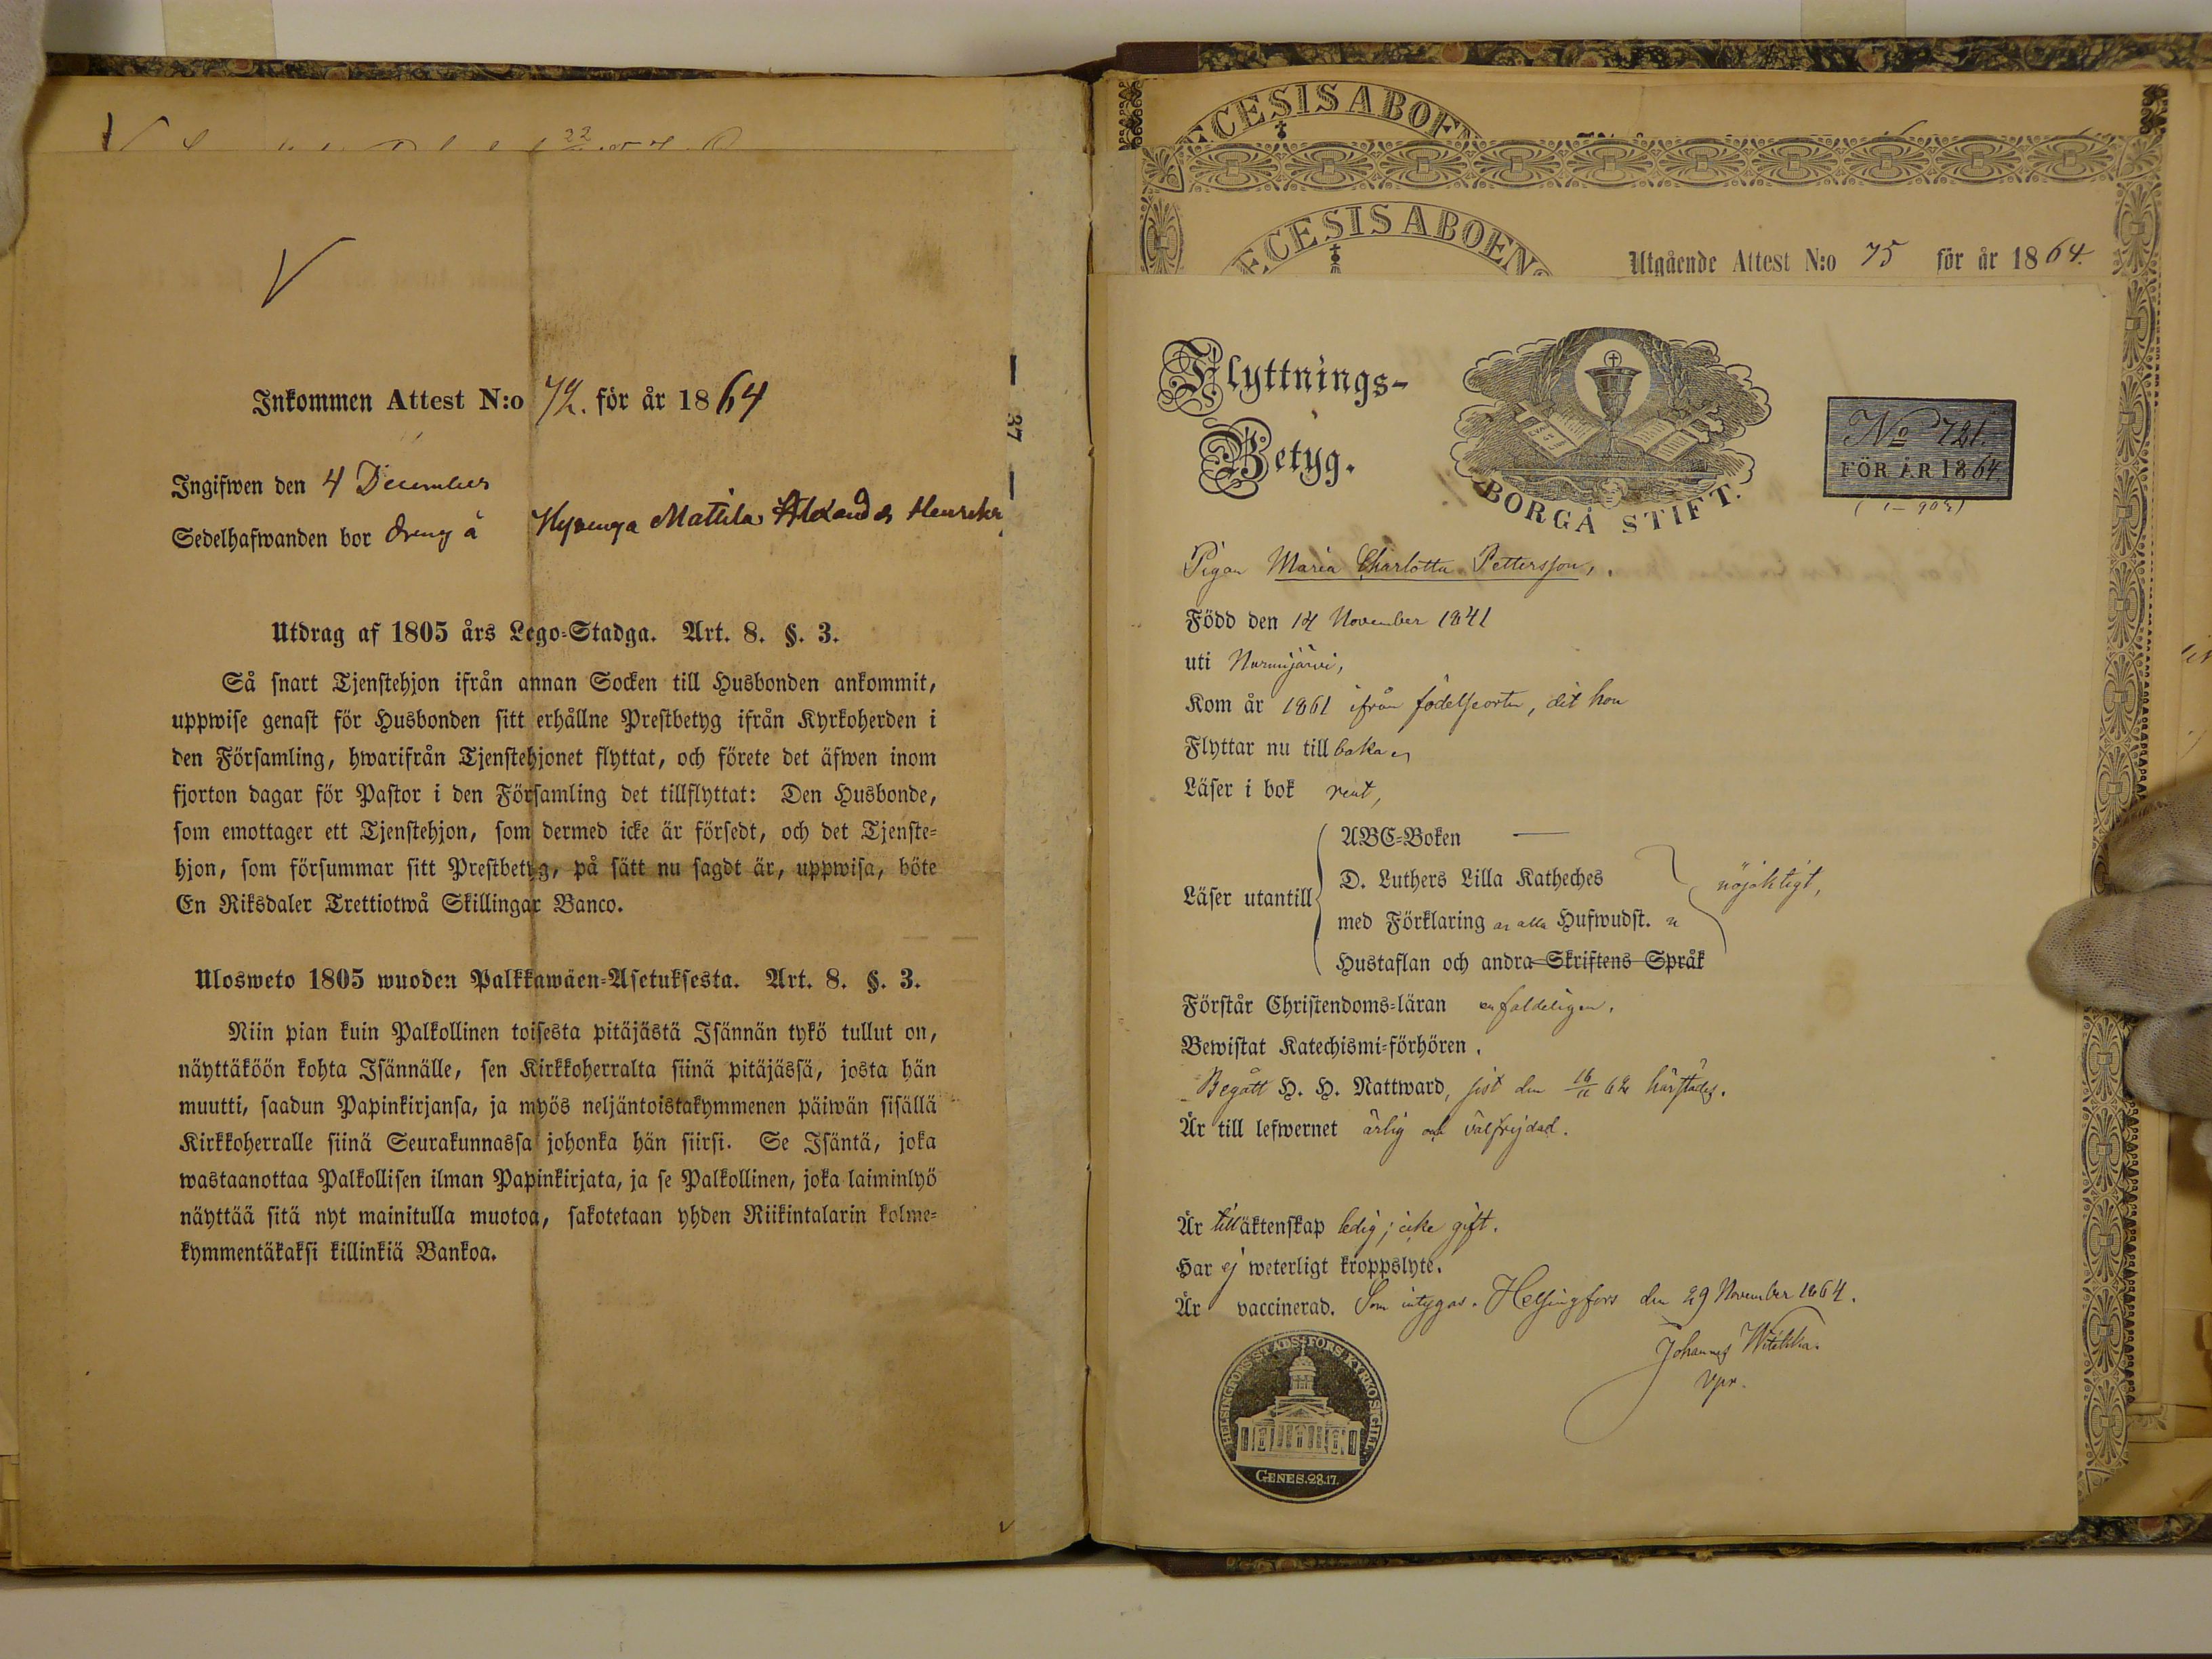 Inkommen Attest N:o 72. för år 1864
Ingifwen den 4 December
Sedelhafwanden bor dreng å Hyvinge Mattila Alexander Henriks
Utdrag af 1805 års Lego-Stadga. Art. 8. §. 3.
Så snart Tjenstehjon ifrån annan Socken till Husbonden ankommit,
uppwise genast för Husbonden sitt erhållne Prestbetyg ifrån Kyrkoherden i
den Församling, hwarifrån Tjenstehjonet flyttat, och förete det äfwen inom
fjorton dagar för Pastor i den Församling det tillflyttat: Den Husbonde,
som emottager ett Tjenstehjon, som dermed icke är försedt, och det Tjenste-
hjon, som försummar sitt Prestbetyg, på sätt nu sagdt är, uppwisa, böte
En Riksdaler Trettiotwå Skillingar Banco.
Ulosweto 1805 wuoden Palkkawäen-Asetuksesta. Art. 8. §. 3.
Niin pian kuin Palkollinen toisesta pitäjästä Isännän tykö tullut on,
näyttäköön kohta Isännälle, sen Kirkkoherralta siinä pitäjässä, josta hän
muutti, saadun Papinkirjansa, ja myös neljäntoistakymmenen päiwän sisällä
Kirkkoherralle siinä Seurakunnassa johonka hän siirsi. Se Isäntä, joka
wastaanottaa Palkollisen ilman Papinkirjata, ja se Palkollinen, joka laiminlyö
näyttää sitä nyt mainitulla muotoa, sakotetaan yhden Riikintalarin kolme-
kymmentäkaksi killinkiä Bankoa.
37
ECESIS ABOEN
ECESIS ABOENS
Utgående Attest N:o 75 för år 1864.
Flyttnings-
Betyg.
BORGÅ STIFT.
No 721.
FÖR ÅR 1864
Pigan Maria Charlotta Pettersson,
Född den 14 November 1841
uti Nurmijärvi,
Kom år 1861 ifrån födelseorten, dit hon
Flyttar nu tillbaka
Läser i bok rent,
Läser utantill
ABC-Boken —
D. Luthers Lilla Katheches
med Förklaring alla Hufwudst.
Hustaflan och andra Skriftens Språk
nöjaktigt,
Förstår Christendoms-läran enfaldeligen.
Bewistat Katechismi-förhören.
Begått H. H. Nattward, sist den 16/11 62 härstädes.
Är till lefwernet ärlig och välfrejdad.
Är till äktenskap ledig; icke gift.
Har ej weterligt kroppslyte.
Är vaccinerad. Som intygas. Helsingfors den 29 November 1864.
Johannes
Vpr.
HELSINGFORS STADS FÖRS. KYRKO SIGILL
GENES. 28.17.